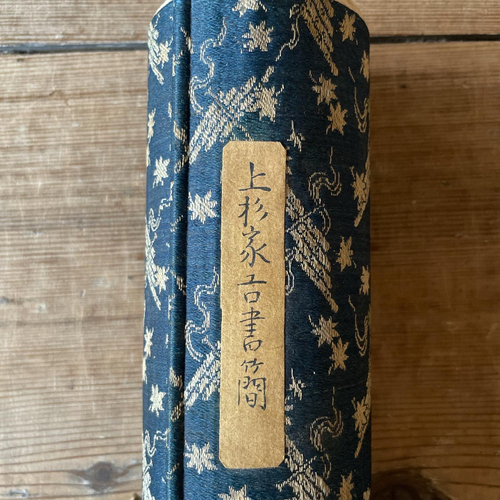 上杉家古書簡